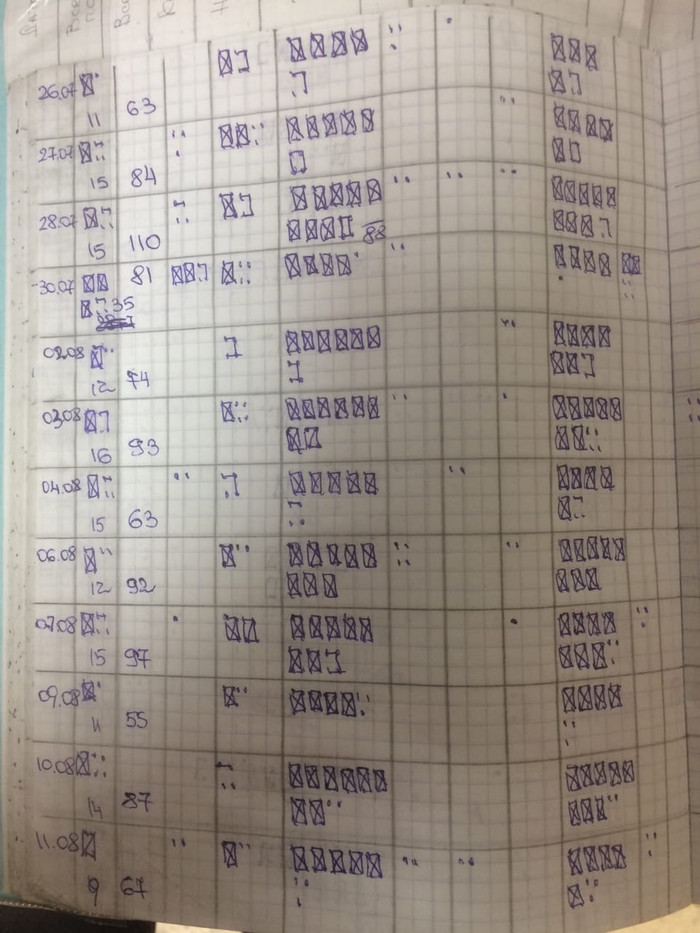 26.07
11 63
27.07
15 84
28.07
15 110 88
30.07 81
35
02.08
12 74
03.08
16 93
04.08
15 63
06.08
12 92
07.08
15 97
09.08
11 55
10.08
14 87
11.08
9 67